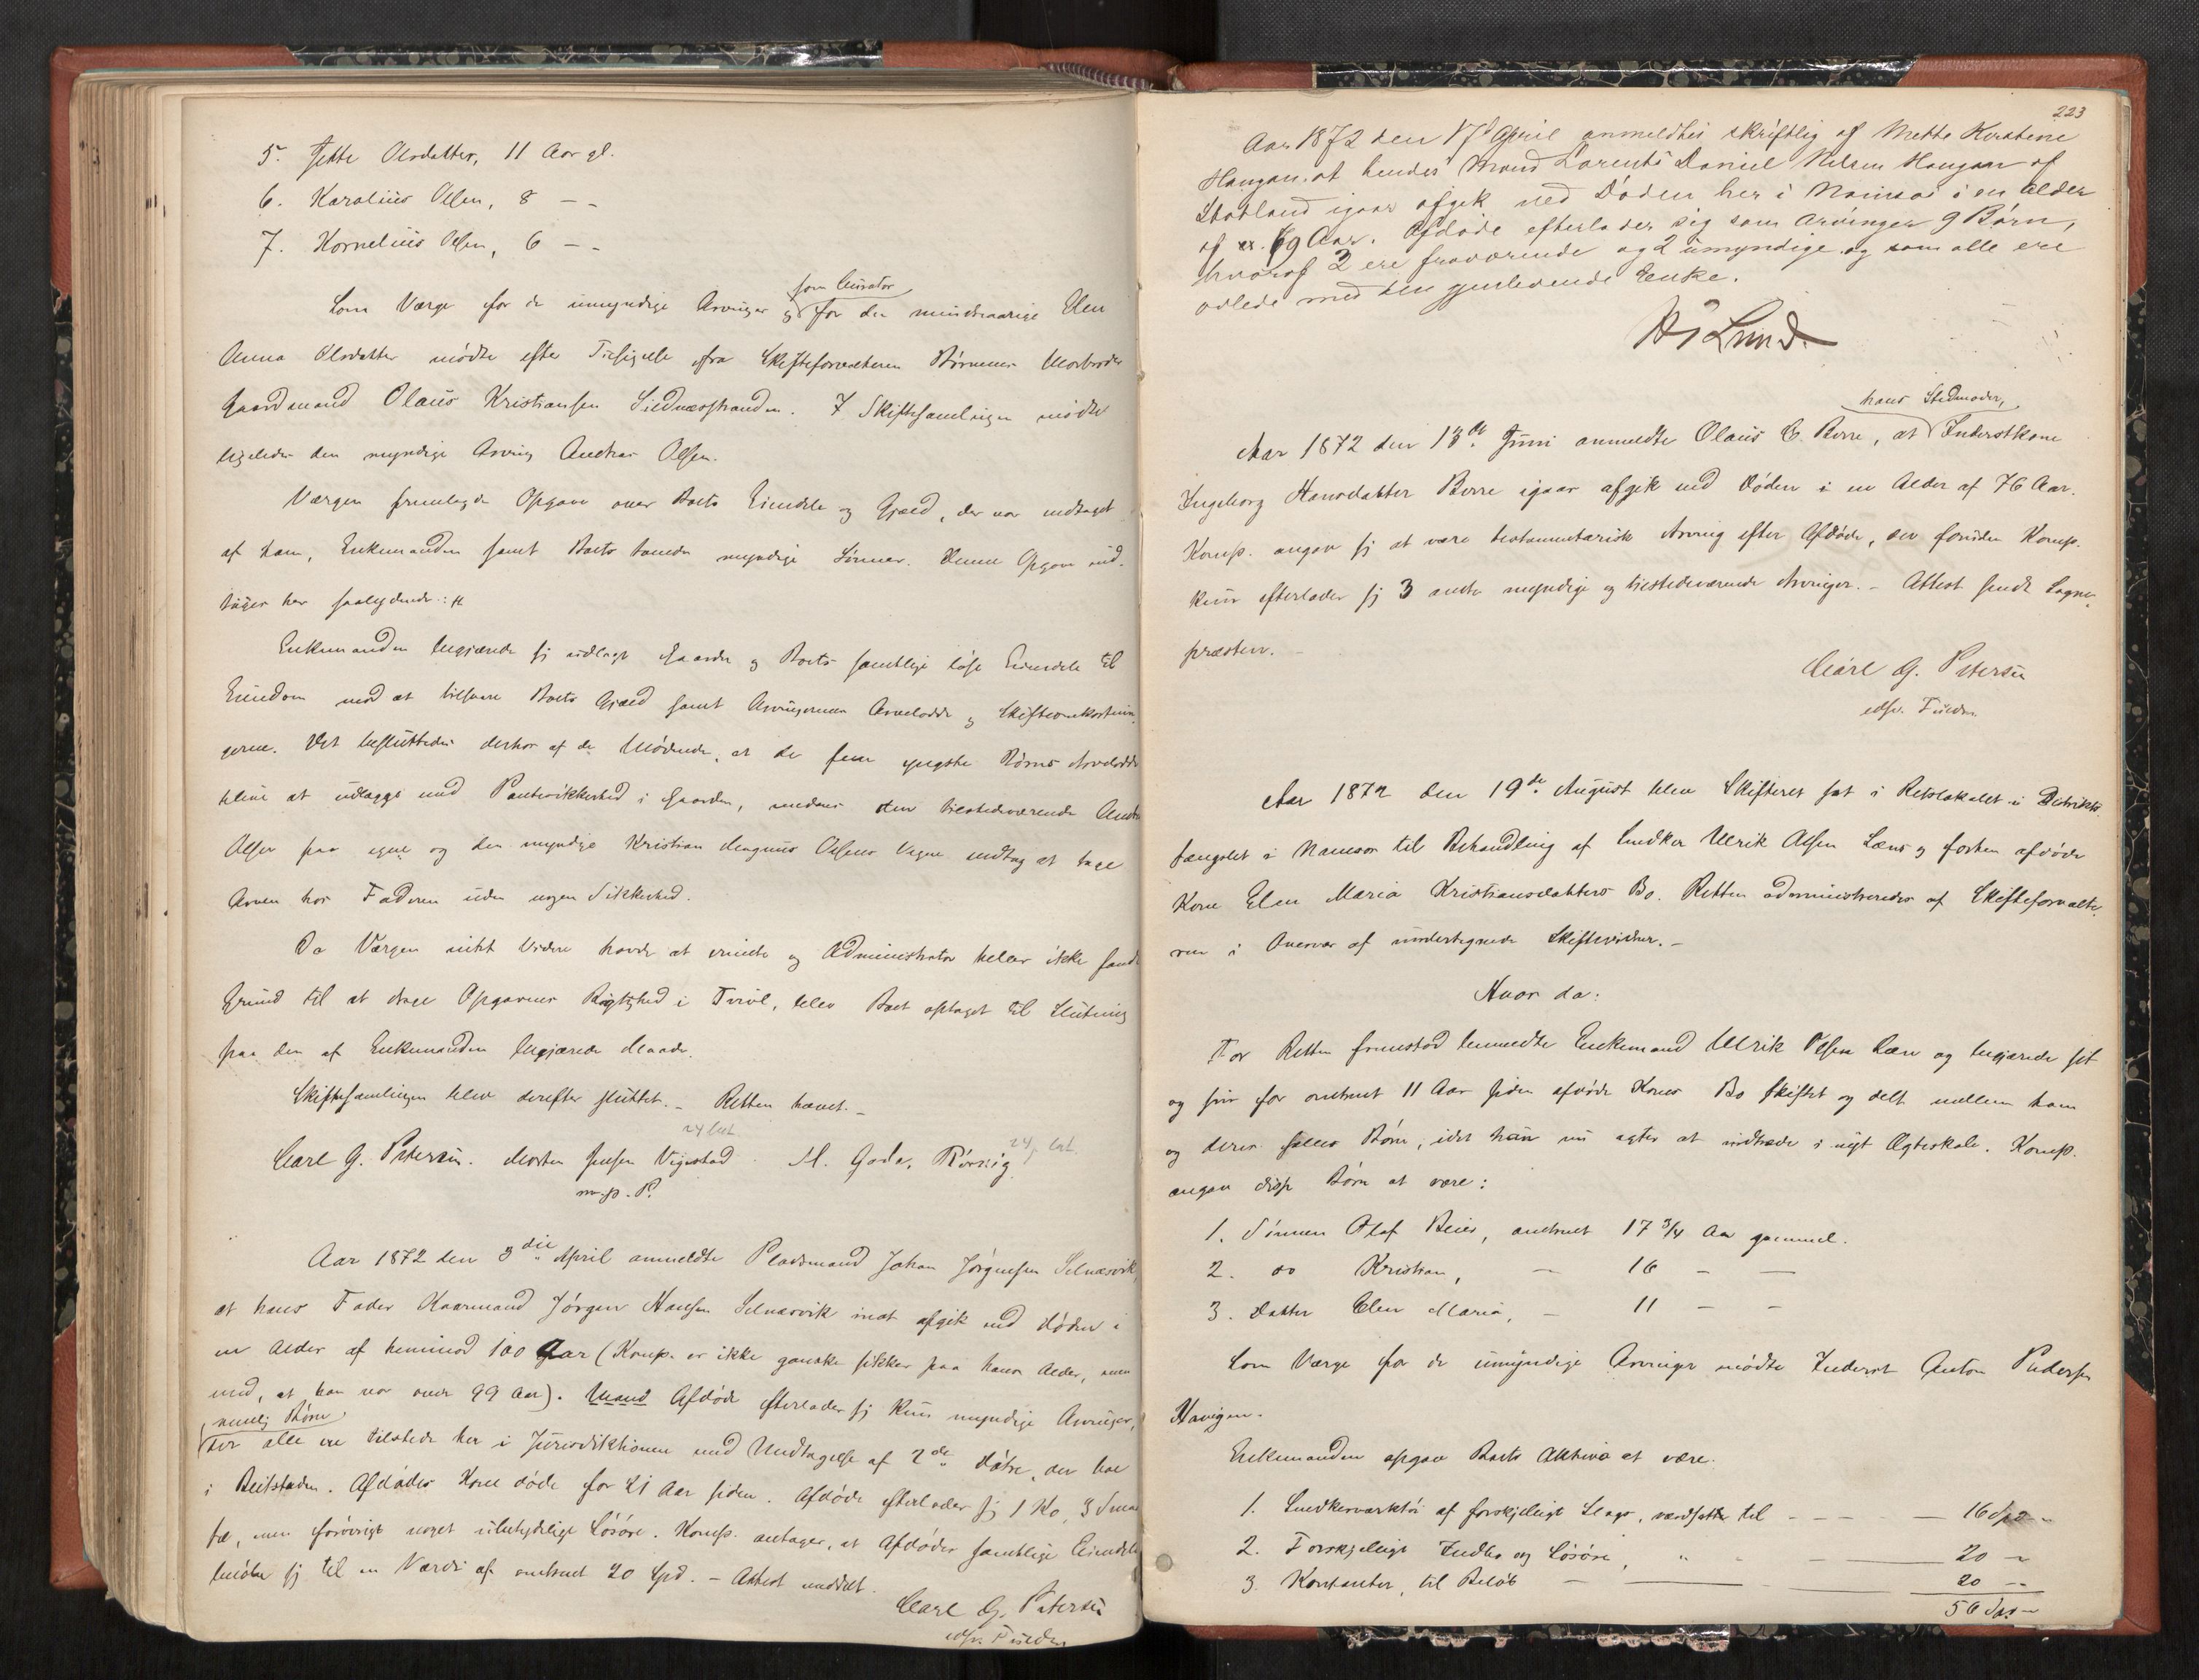 5. Jette Olsdatter, 11 Aar gl.
6. Karolius Olsen, 8 – –
7. Kornelius Olsen, 6 – –
som Curator
Som Værge for de umyndige Arvinger og for den mindreaarige Elen
Anna Olsdatter mødte efter Tilsigelse fra Skifteforvalteren Børnenes Morbroder
Gaardmand Olaus Kristiansen . I Skiftesamlingen mødte
ligeledes den myndige Arving Andreas Olsen.
Værgen fremlagde Opgave over Boets Eiendele og Gjæld, der var optaget
af ham, Enkemanden samt Boets tvende myndige Sønner. Denne Opgave ind-
tages her saalydende: #
Enkemanden begjærede sig udlagt Gaarden og Boets samtlige løse Eiendele til
Eiendom mod at tilsvare Boets Gjæld samt Arvingernes Arvelodder og Skifteomkostnin-
gerne. Det besluttedes derhos af de Mødende, at de fem yngste Børns Arvelodder
bliver at udlægges med Pantesikkerhed i Gaarden, medens den tilstedeværende Andreas
Olsen paa egne og den myndige Kristian Magnus Olsens Vegne vedtog at tage
Arven hos Faderen uden nogen Sikkerhed.
Da Værgen intet videre havde at erindre og Administrator heller ikke fandt
Grund til at drage Opgavens Rigtighed i Tvivl, blev Boet optaget til Slutning
paa den af Enkemanden begjærede Maade.
Skiftesamlingen blev derefter sluttet. – Retten hævet. –
24 bet 24 bet
Carl G. Petersen. Morten Jensen Vigestad M. Gade, Rørvig
m. p. P.
Aar 1872 den 3die April anmeldte Pladsmand Johan Jørgensen Selnæsvik,
at hans Fader Kaarmand Jørgen Hansen Selnæsvik inat afgik ved Døden i
en Alder af henimod 100 Aar (Komp. er ikke ganske sikker paa hans Alder, men
med, at han var over 99 Aar). Afdøde efterlader sig kun myndige Arvinger,
nemlig Børn
der alle ere tilstede her i Jurisdiktionen med Undtagelse af 2de Døtre, der bor
i Beitstaden. Afdødes Kone døde for 21 Aar siden. Afdøde efterlader sig 1 Ko, 3 Smaa-
fæ, men forøvrigt noget ubetydelige Løsøre. Komp. antager, at Afdødes samtlige Eiendele
beløber sig til en Værdi af omtrent 20 Spd. – Attest meddelt.
Carl G. Petersen
edsv. Fuldm.
223
Aar 1872 den 17d April anmeldtes skriftlig af Mette Kirstine
Haugan, at hendes Mand Lorents Daniel Nilsen Haugan af
igaar afgik ved Døden her i Namsos i en Alder
af 69 Aar. Afdøde efterlader sig som Arvinger 9 Børn,
hvoraf 2 ere fraværende og 2 umyndige og som alle ere
avlede med den gjenlevende Enke.
Lund
hans Stedmoder,
Aar 1872 den 13de Juni anmeldte Olaus C. Berre, at Inderstkone
Ingeborg Hansdatter Berre igaar afgik ved Døden i en Alder af 76 Aar.
Komp. angav sig at være testamentarisk Arving efter Afdøde, der foruden Komp.
kun efterlader sig 3 andre myndige og tilstedeværende Arvinger. – Attest sendt Sogne-
præsten.
Carl G. Petersen
edsv. Fuldm.
Aar 1872 den 19de August blev Skifteret sat i Retslokalet i Distrikts-
fængslet i Namsos til Behandling af Snedker Ulrik Olsen Læns og forhen afdøde
Kone Elen Maria Kristiansdatters Bo. Retten administreredes af Skifteforvalte-
ren i Overvær af undertegnede Skiftevidner. –
Hvor da:
For Retten fremstod bemeldte Enkemand Ulrik Olsen Læn og begjærede sit
og sin for omtrent 11 Aar siden afdøde Kones Bo skiftet og delt mellem ham
og deres fælles Børn, idet han nu agter at indtræde i nyt Ægteskab. Komp.
angav disse Børn at være:
1. Sønnen Olaf Beier, omtrent 17 3/4 Aar gammel.
2. do Kristian, – 16 – –
3. Datter Elen Maria, – 11 – –
Som Værge for de umyndige Arvinger mødte Inderst Anton Pedersen
Havigen.
Enkemanden opgav Boets Aktiva at være.
1. Snedkerværktøi af forskjelligt Slags, værdsatte til – – – – 16 Spd –
2. Forskjelligt Indbo og Løsøre, " – – 20 –
3. Kontanter, til Beløb – – – 20 –
56 Spd –